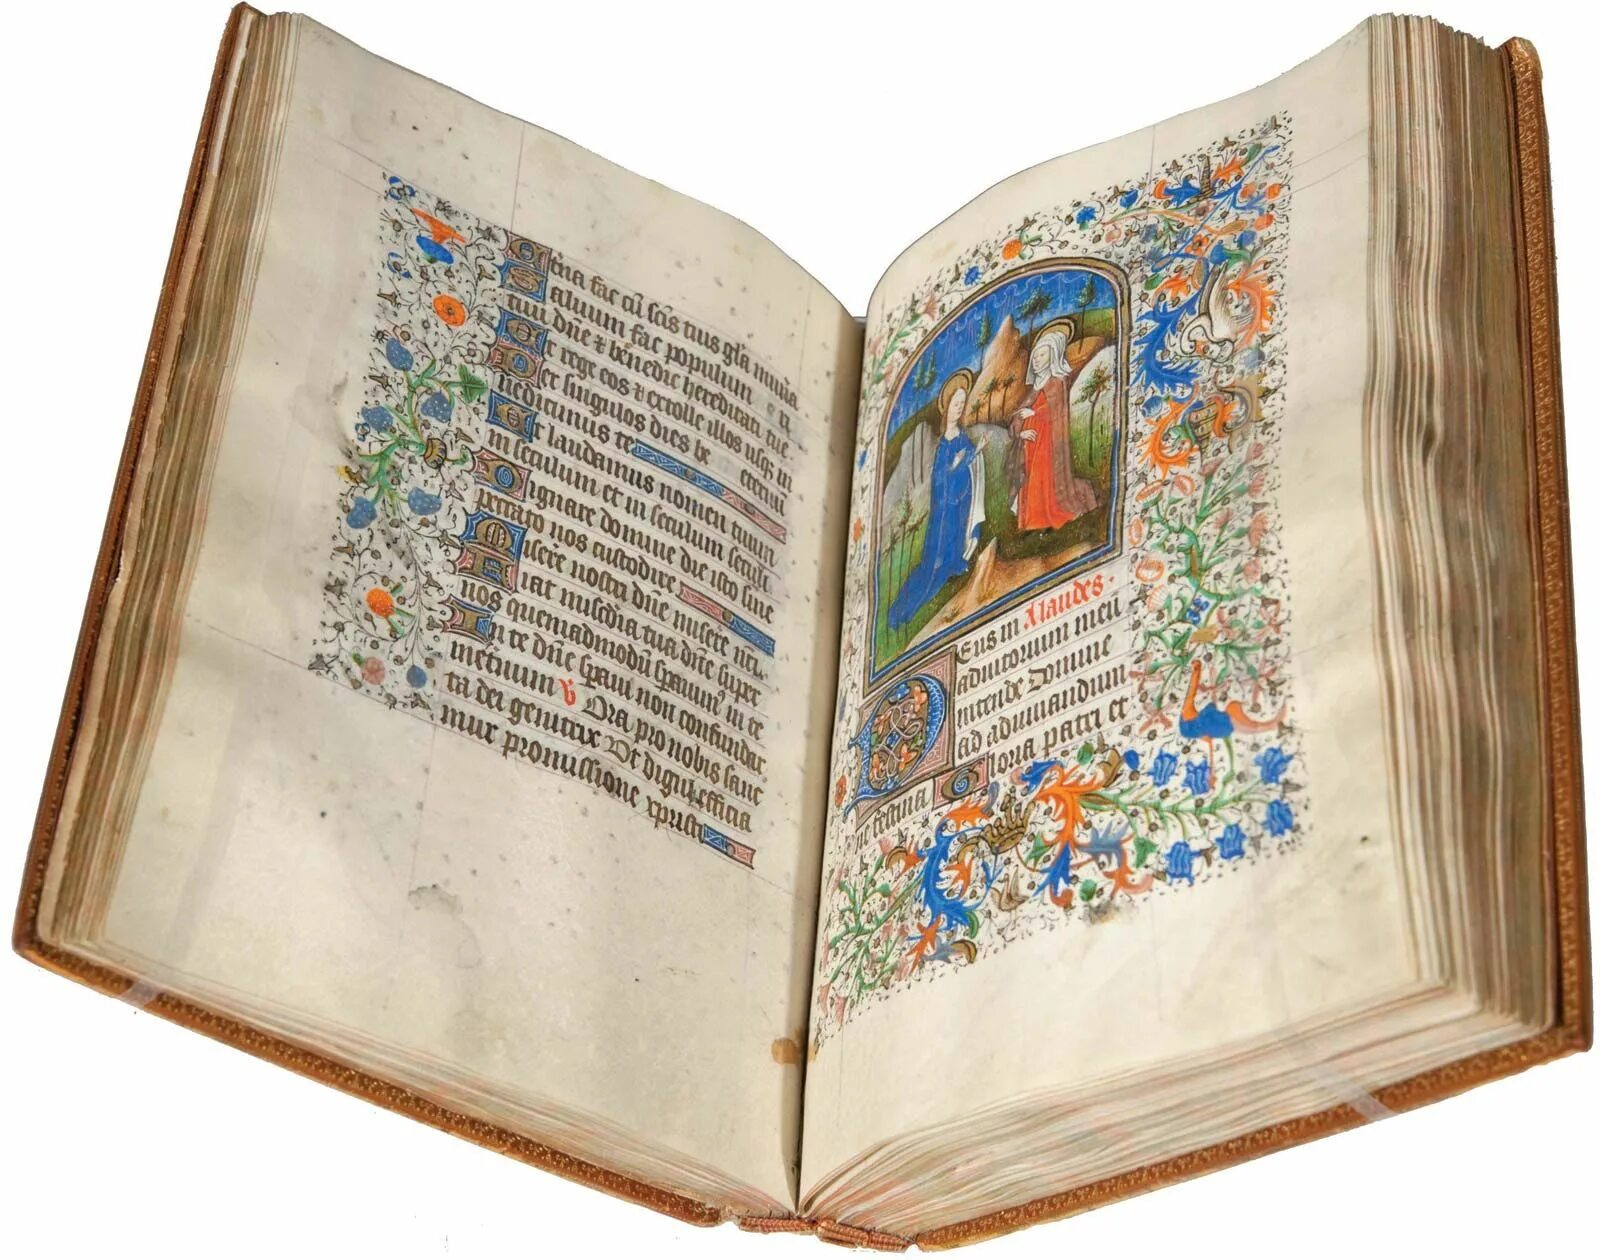 Et̄na fac cū sc̄is tuis gl̄a mun̄a
Saluum fac populum
tuū dn̄e & benedic hereditati tue
Et rege eos & extolle illos usqꝫ in
Per singulos dies be eternū
nedicimus te
Et laudamus nomen tuum
in seculum et in seculum seculi
Dignare domine die isto sine
peccato nos custodire
Misere nostri dn̄e misere nr̄i
Fiat mīsedia tua dn̄e super
nos quemadmodū spauimꝰ in te
In te dn̄e spaui non confundar
in et̄num ℣ Ora pro nobis sanc
ta dei genitrix Vt digni efficia
mur promissione xpristi
Deus in Ad laudes
adiutorium meū
intende Domine
ad adiuuandum
me festina Gloria patri et